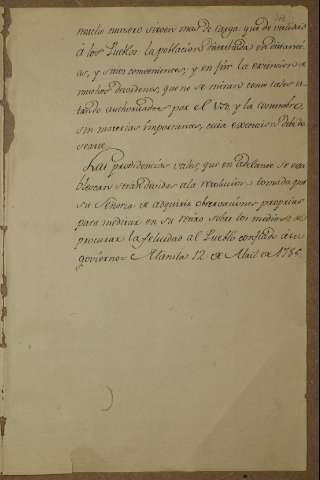 mucho numero sirven mas de carga que de utilidad
à los Pueblos la poblacion distribuida en distancias
as, y sitios convenientes; y en fin la extension de
muchos desordenes, que no se miran como tales es
tando authorizados por el uso, y la costumbre,
son materias importantes, cuia execucion debi de
searse.
Las providencias utiles, que en adelante se esta
blescan seran devidas a la resolucion tomada por
su Señoria de adquirir observaciones proprias
para meditar en su retiro sobre los medios de
procurar la felicidad al Pueblo confiado à su
govierno. Manila 12 de Abril de 1785